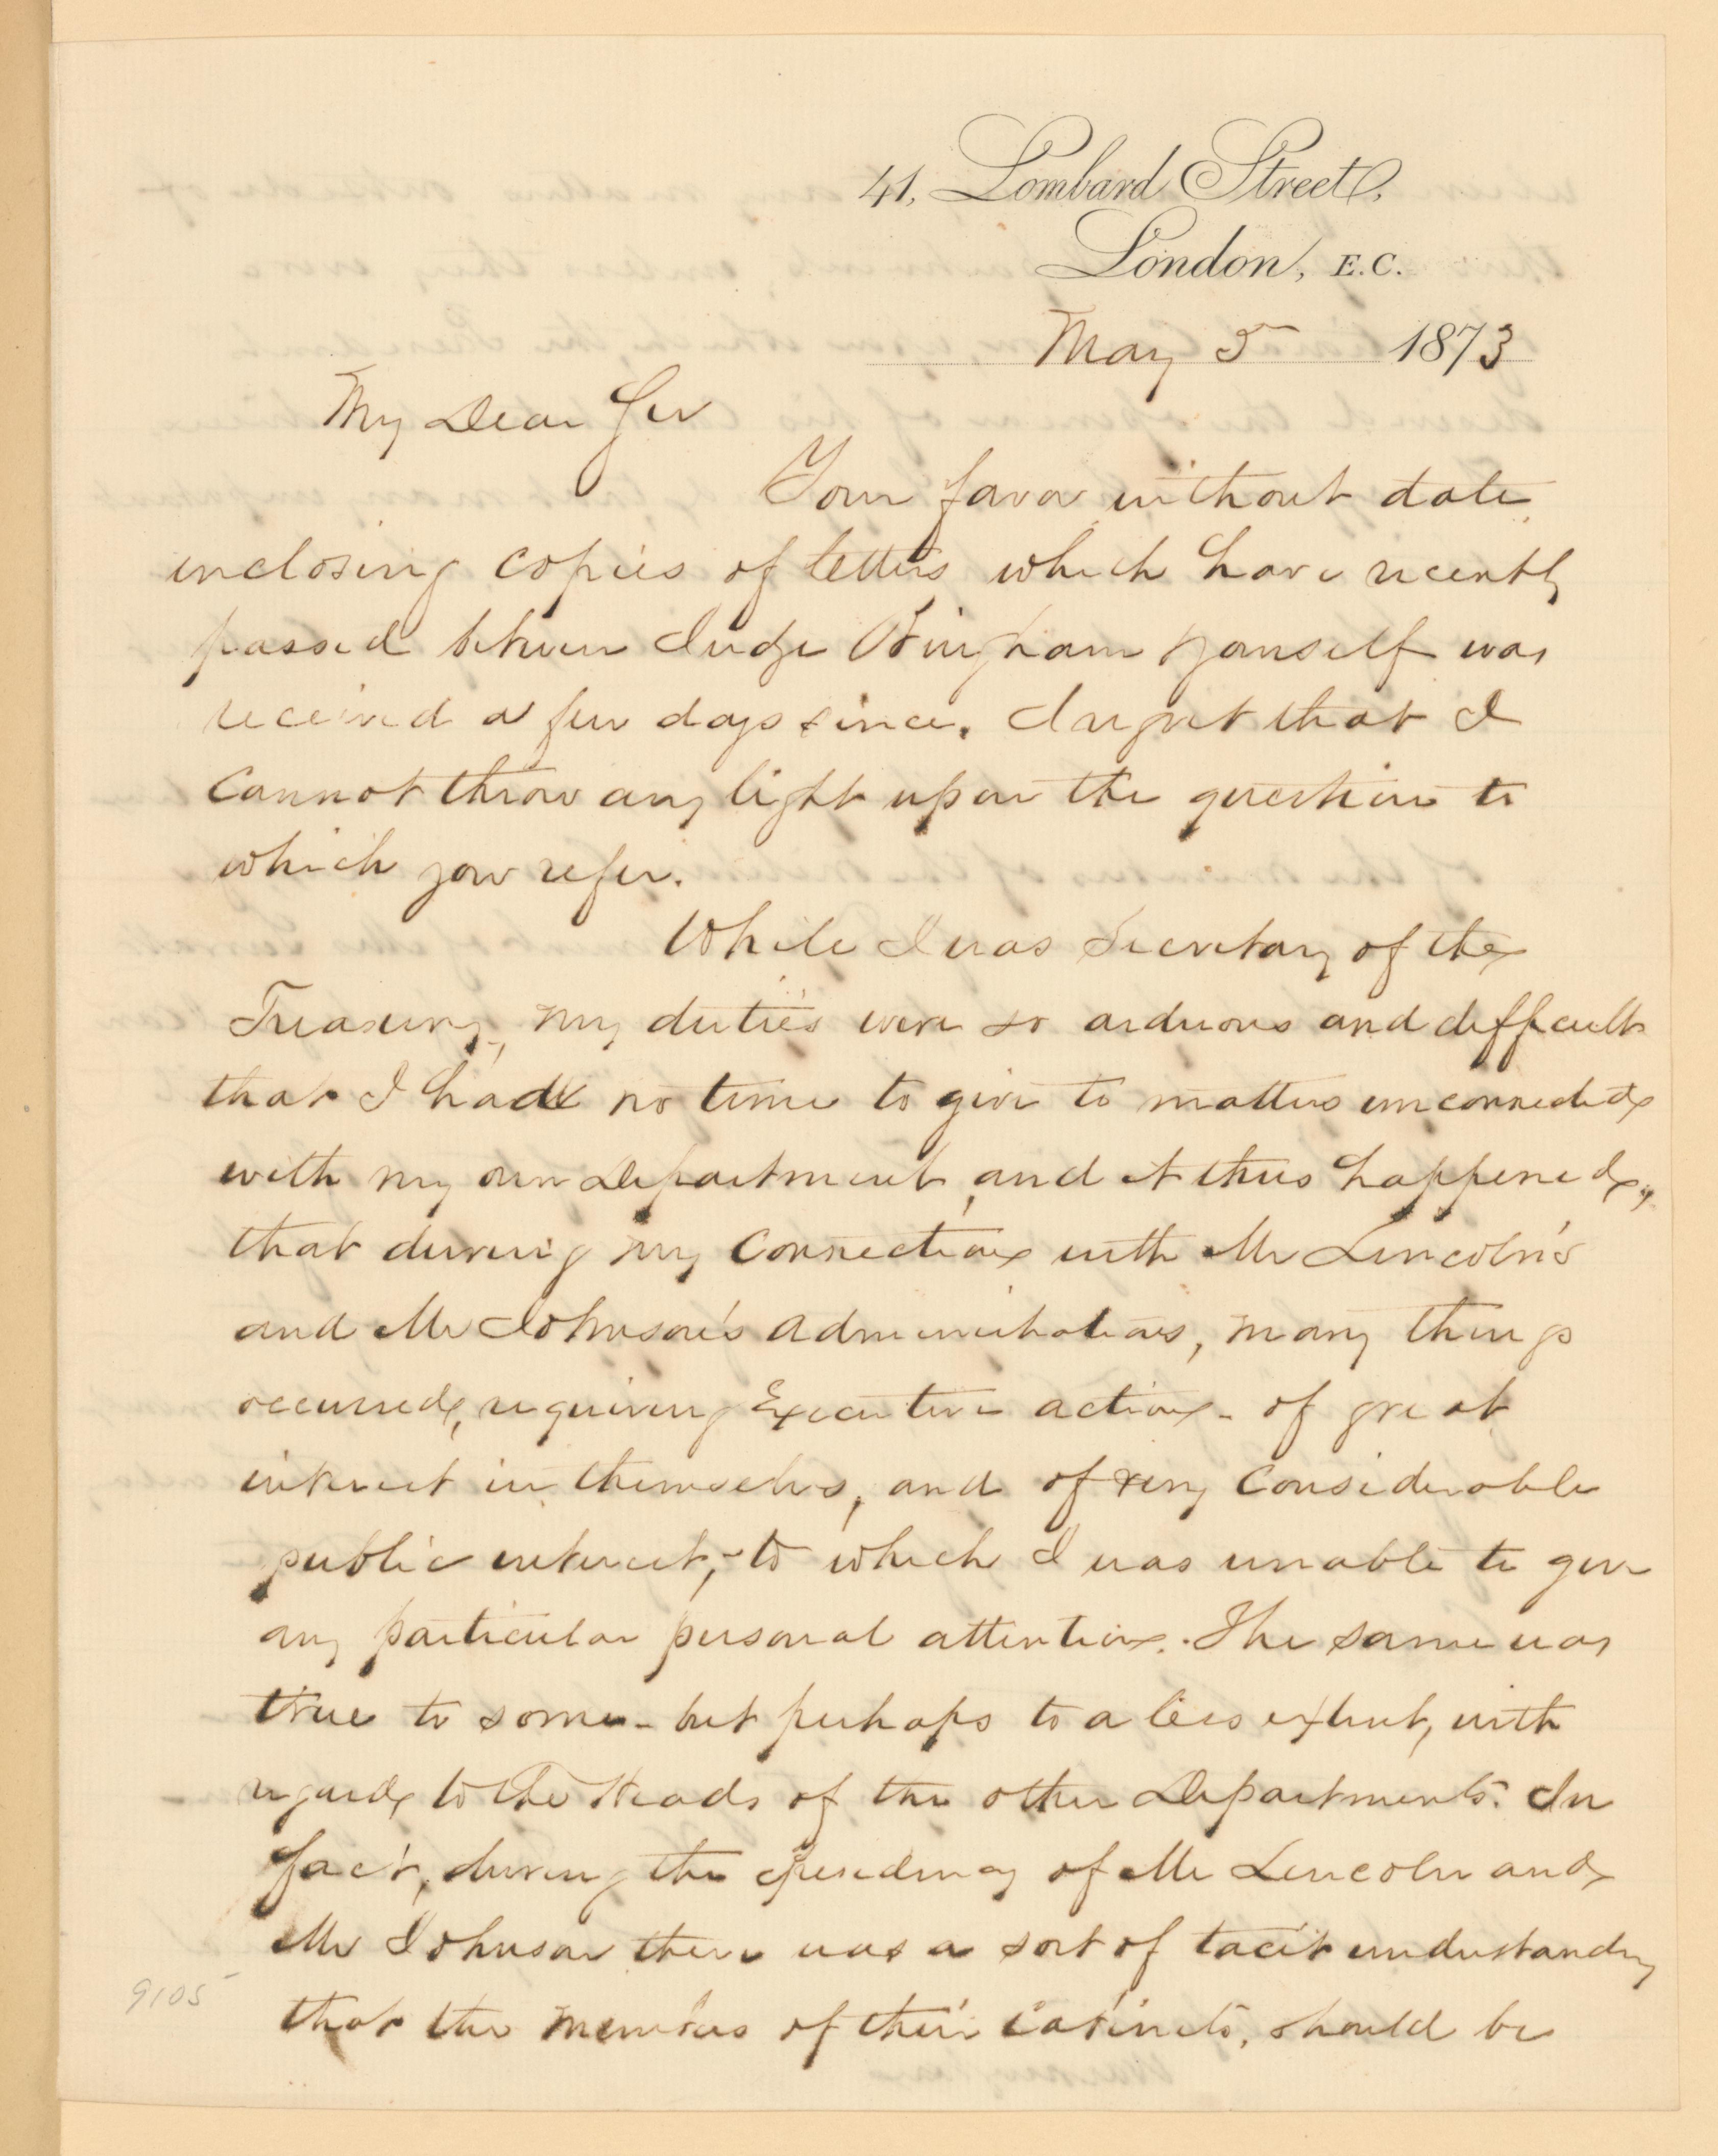 41, Lombard Street,
London, E.C.
May 5 1873
My Dear Sir
Your favor without date
inclosing copies of letters which have recently
passed between Judge Bingham & yourself was
received a few days since. I regret that I
cannot throw any light upon the question to
which you refer.
While I was Secretary of the
Treasury, my duties were so arduous and difficult
that I had no time to give to matters unconnected
with my own Department, and it thus happened,
that during my connection with Mr Lincoln's
and Mr Johnson's administrations, many things
occurred, requiring Executive action - of great
interest in themselves, and of very considerable
public interest, - to which I was unable to give
any particular personal attention. The same was
true to some - but perhaps to a less extent, with
regard to the Heads of the other Departments. In
fact, during the presidency of Mr Lincoln and
Mr Johnson there was a sort of tacit understanding
that the members of their cabinets, should be
9105